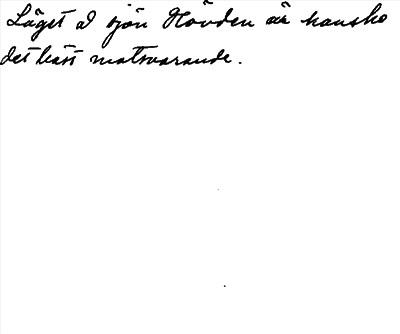 Läget å sjön Hövden är kanske
det bäst motsvarande.